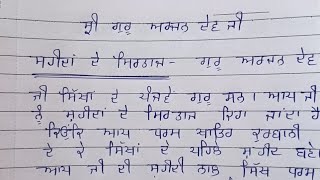 ਸ੍ਰੀ ਗੁਰੂ ਅਰਜਨ ਦੇਵ ਜੀ
ਸ਼ਹੀਦਾਂ ਦੇ ਸਿਰਤਾਜ - ਗੁਰੂ ਅਰਜਨ ਦੇਵ
ਜੀ ਸਿੱਖਾਂ ਦੇ ਪੰਜਵੇਂ ਗੁਰੂ ਸਨ। ਆਪ ਜੀ
ਨੂੰ ਸ਼ਹੀਦਾਂ ਦੇ ਸਿਰਤਾਜ ਕਿਹਾ ਜਾਂਦਾ ਹੈ
ਕਿਉਂਕਿ ਆਪ ਧਰਮ ਖਾਤਿਰ ਕੁਰਬਾਨੀ
ਦੇ ਕੇ ਸਿੱਖਾਂ ਦੇ ਪਹਿਲੇ ਸ਼ਹੀਦ ਬਣੇ।
ਆਪ ਜੀ ਦੀ ਸ਼ਹੀਦੀ ਨਾਲ ਸਿੱਖ ਧਰਮ